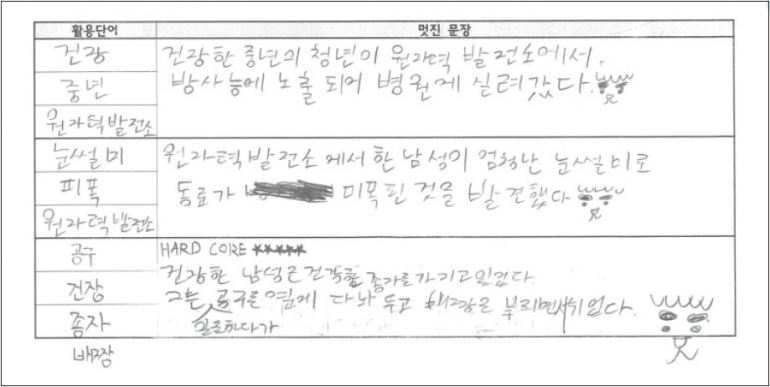 활용단어 멋진 문장
건강 건강한 중년의 청년이 원자력 발전소에서
중년 방사능에 노출 되어 병원에 실려갔다.
원자력발전소
눈썰미 원자력발전소에서 한 남성이 엄청난 눈썰미로
피폭 동료가 피폭된 것을 발견했다
원자력발전소
공구 HARD CORE ★★★★★
건강 건강한 남성은 건강한 종자를 가지고 있었다.
그는 공구를 옆에 다 놔 두고 배짱을 부리면서 쉬었다.
종자 일하다가
배짱